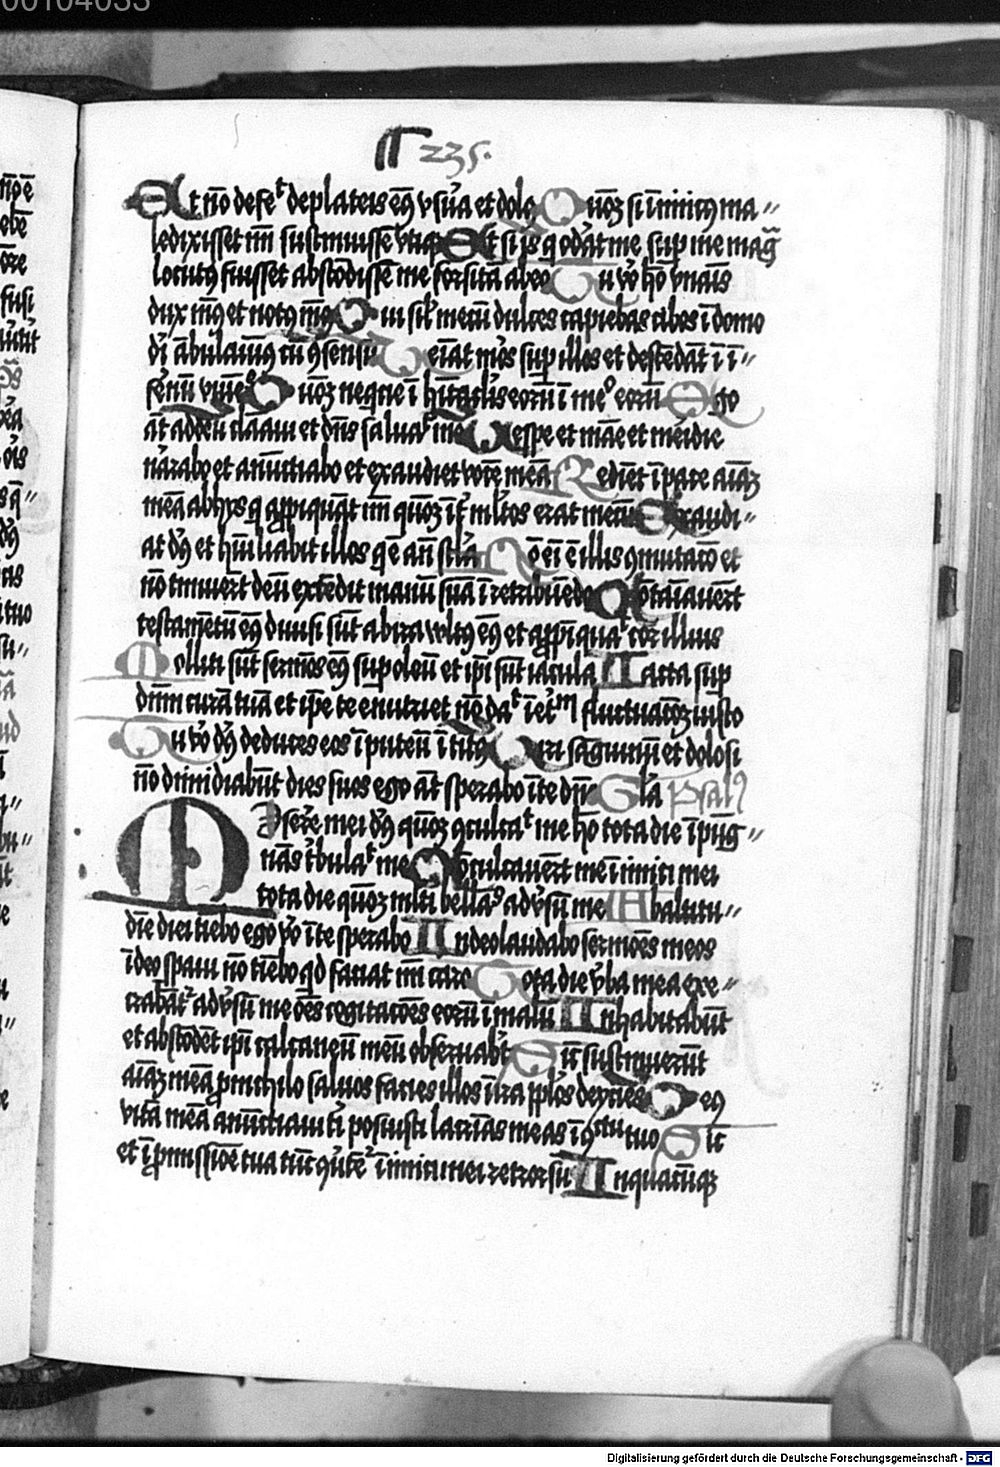 00104033
235.
Et nō defeᵗ de plateis eꝯ vsūa et dolꝯ Quōꝫ si inimicꝯ ma〃
ledixisset mī sustinuissē vtiqꝫ Et si is q̄ oderāt me sup me mag̃
locutꝯ fuisset abscōdissē me forsitā ab eo Tu v̊o hō vnāīs
dux mꝯ et notꝯ mꝯ Qui sil̄ mecū dulces capiebas cibos ī domo
dī ābulauīꝯ cū ꝯsensu Veīat mōs sup illos et descēdāt ī ī〃
fernū viuēᵒ Quōꝫ neqͥcie ī hītaclis eorū ī meᵒ eorū Ego
āt ad deū clāaui et dn̄s saluaᵗ me Vespe et mane et meridie
nārabo et anūctiabo et exaudiet vocē meā Redimet ī pace aīaꝫ
meā ab hys q̄ appīquāt mī quōꝫ īt mltos erat mecū Exaudi〃
at dꝰ et hūiliabit illos qͥ ē ān scl̄a Nō eī ē illis ꝯmutatō et
nō timuerūt deū extēdit manū suā ī retribuēdo Cōtaīauerūt
testamētū eꝯ diuisi sūt ab ira vultꝯ eꝯ et appīquaᵗ cor illius
Molliti sūt sermōes eꝯ sup oleū et ip̄i sūt iacula Iacta sup
dn̄m curā tuā et ip̄e te enutriet nō daᵗ ī et̄ᵐ fluctuatōꝫ iusto
Tu v̊o dꝰ deduces eos ī puteū ītitꝯ Viri sāguinū et dolosi
nō dimidiabūt dies suos ego āt sperabo ī te dn̄e Gl̄a Psal̄
Miserēre mei dꝰ quōꝫ ꝯculcaᵗ me hō tota die īpūg〃
nās tbulaᵗ me Cōculcauerūt me inimici mei
tota die quōꝫ mlti bellāᵒ advsū me Ab altitu〃
die diei tiebo ego v̊o ī te sperabo In deo laudabo sermōes meos
ī deo spaui nō tīebo qd faciat mī caro Tota die v̄ba mea exe〃
crabātᵗ advsū me ōes cogitatōes eorū ī malū Inhabitabūt
et abscōdēt ip̄i calcaneū meū obseruabūt Sic sustinuerūt
aīaꝫ meā p nichilo saluos facies illos ī ira ppl̄os ꝯfriges Deꝯ
vitā meā anūctiaui tī posuisti lacrīas meas ī ꝯᶜᵗᵘ tuo Sic
et ī pmissiōe tua tūc ꝯuteᵗ inimici mei retrorsū In quacūqꝫ
Digitalisierung gefördert durch die Deutsche Forschungsgemeinschaft - DFG